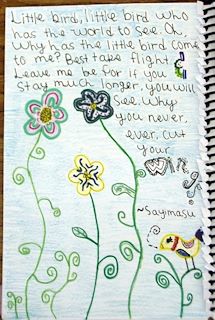 Little bird, little bird who
has the world to see. Oh
Why has the little bird come
to me? Best take flight,
Leave me be for if you
stay much longer, you will
see. Why
you never,
ever, cut
your
wings
~Sayimasu